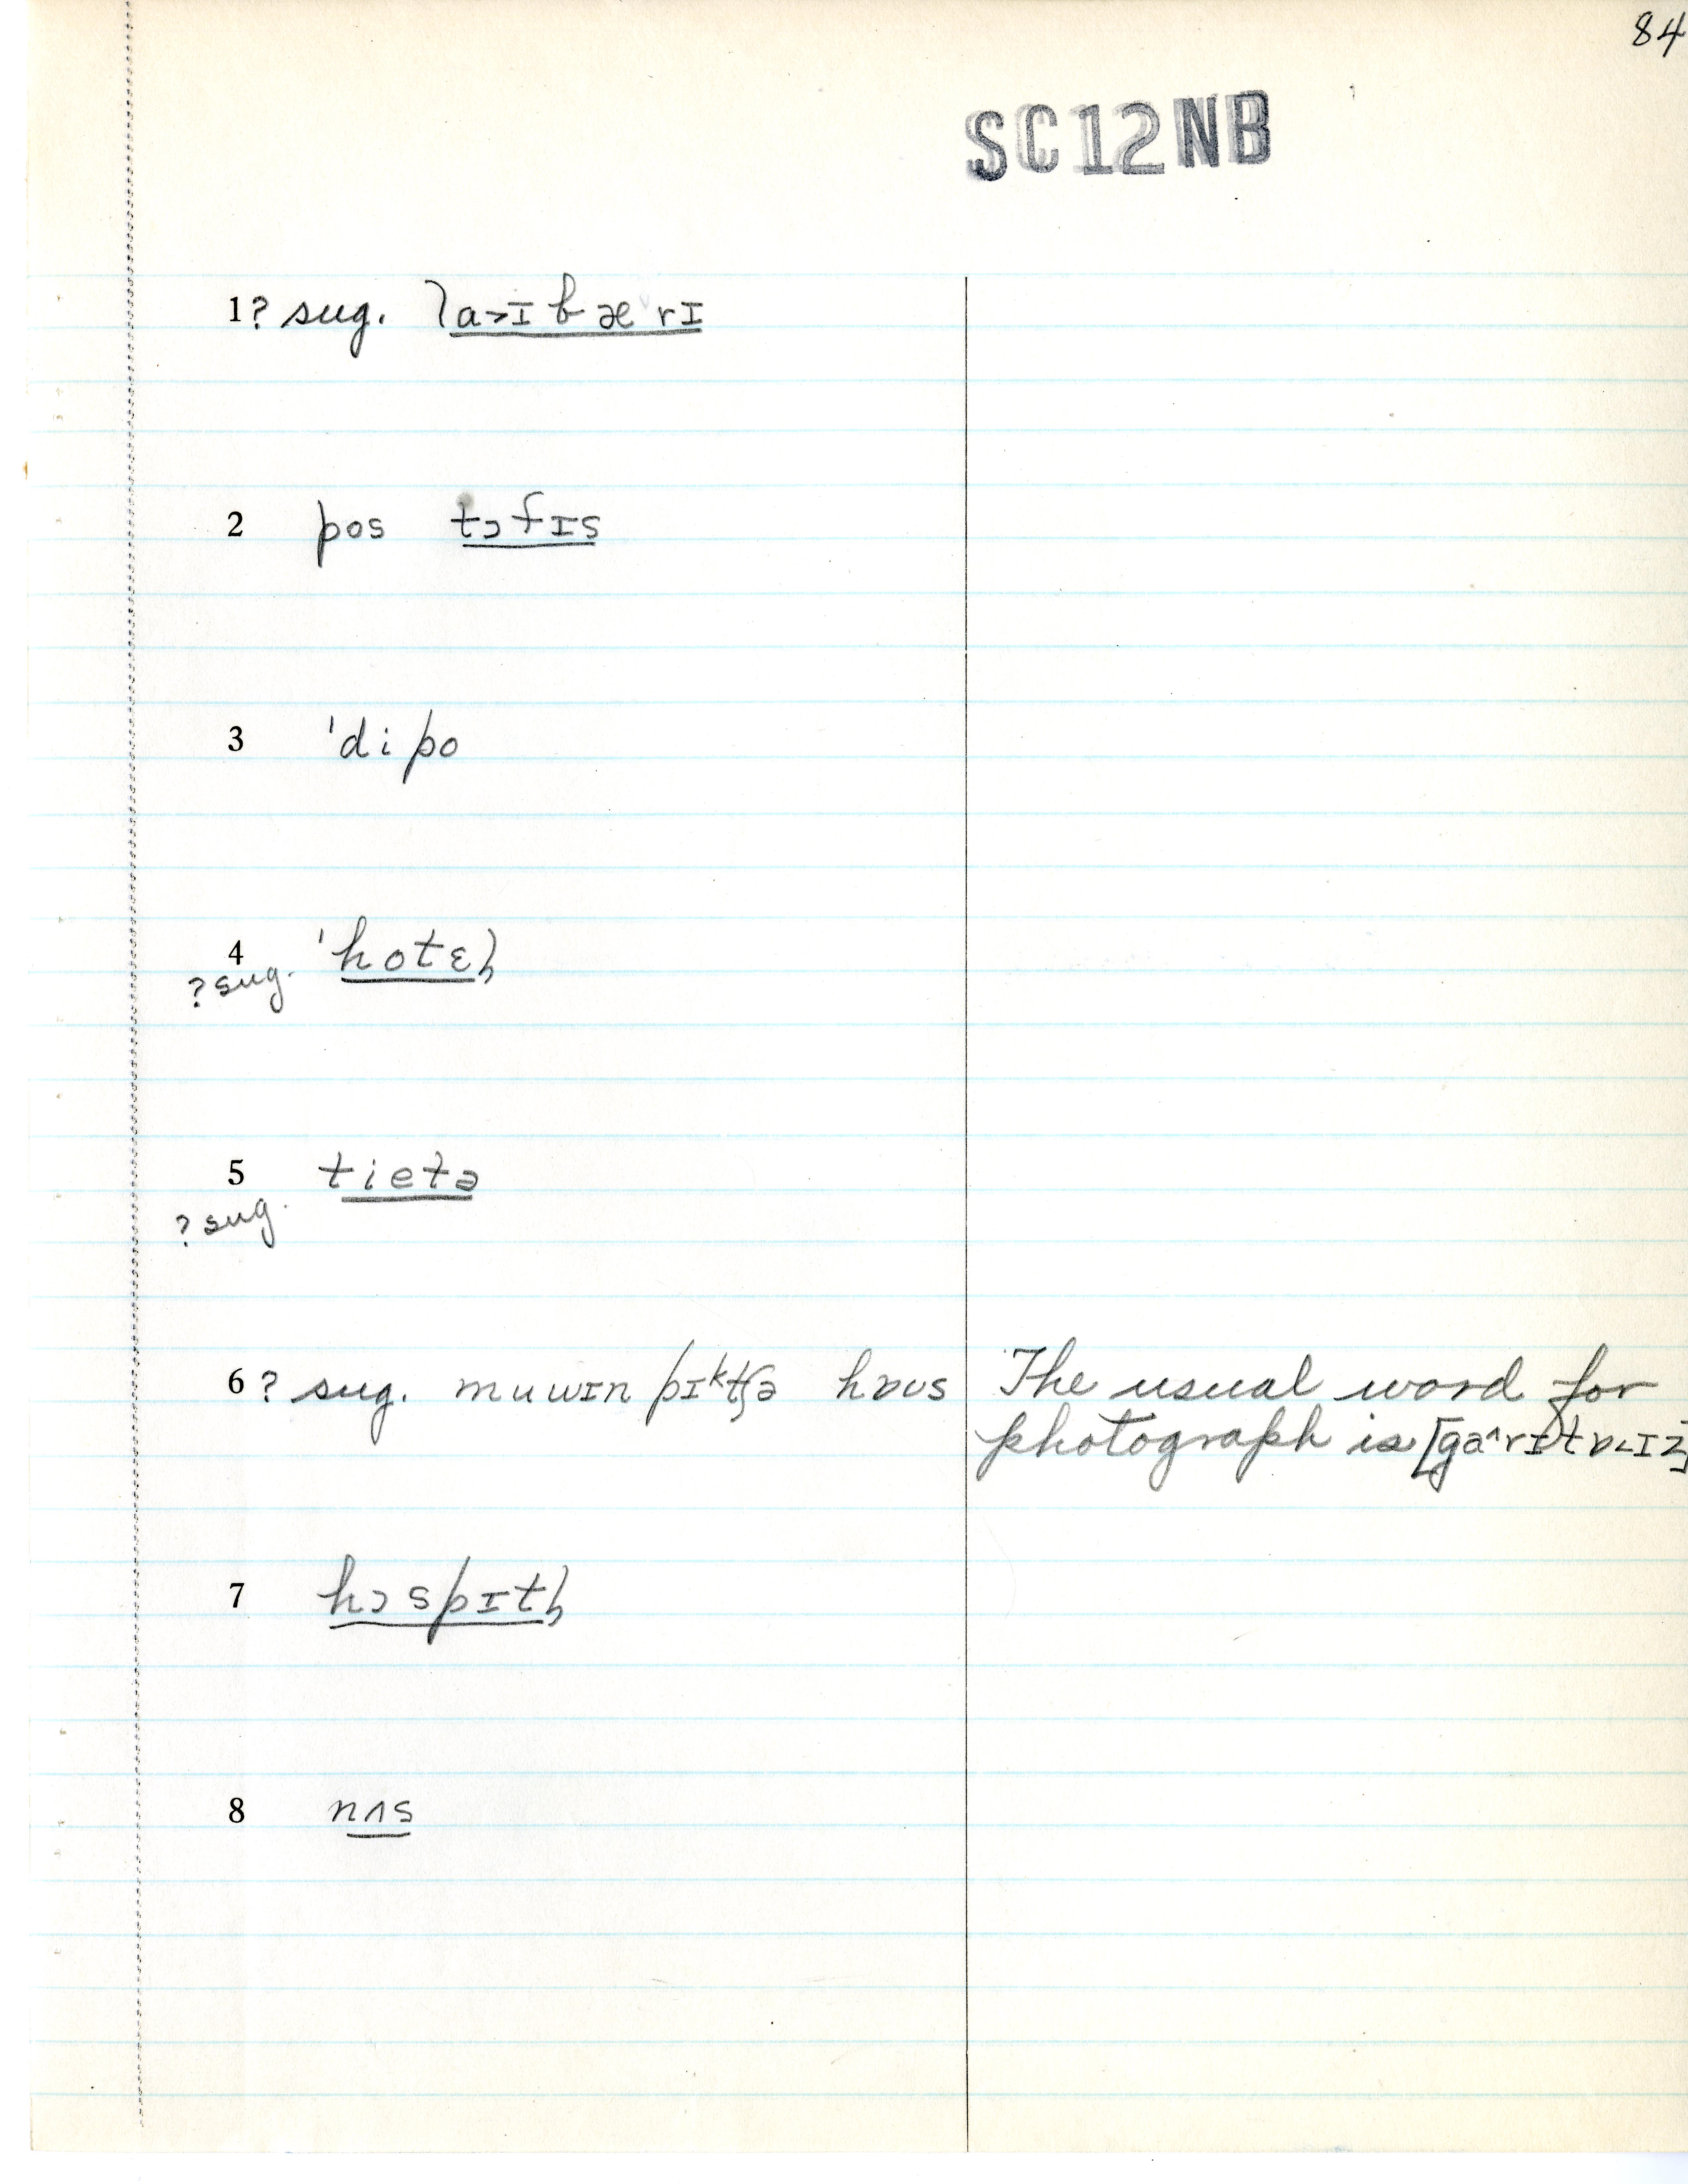 84
SC12NB
1? sug. la>ɪbærɪ
2 pos tɔfɪs
3 'dipo
4 'hotɛl
? sug.
5 tietə
? sug.
6? sug. muwɪn pɪktʃə hɒʊs
The usual word for
photograph is [ga^rɪtɒ<ɪz]
7 hɔspɪtl
8 nʌs